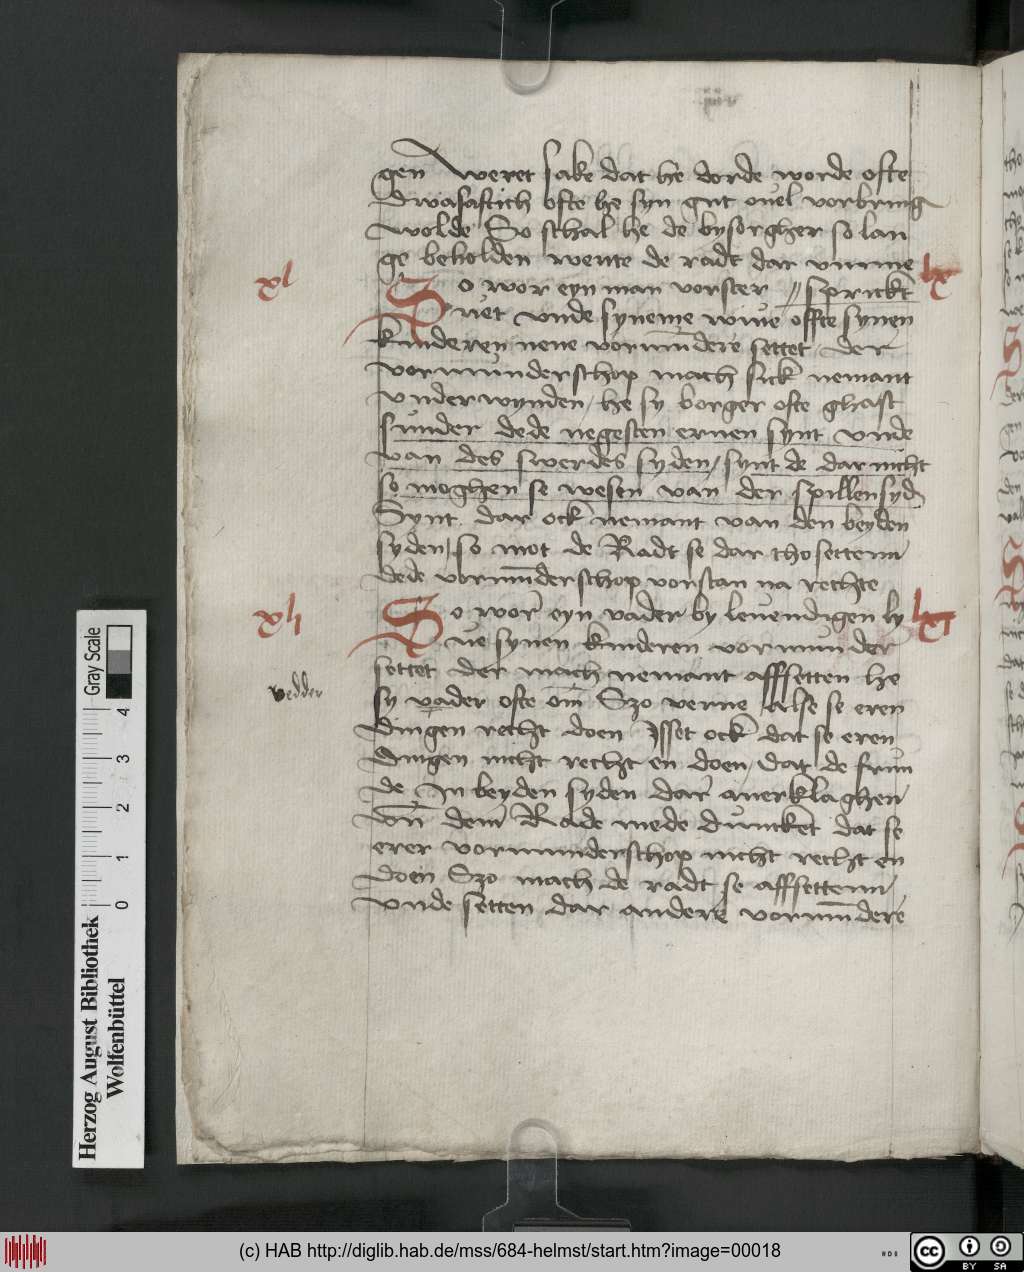 gen Weret sake dat he dorde worde ofte
dwasaftich ofte he syn gut ouel vorbring
wolde So schal he de bysorgher so lan
ge beholden wente de radt dar vmme
xl
So wor eyn man vorster // sprickt
lx
uet vnde syneme wiue offte synen
kinderen nene vormūdere settet Der
vormunderschop mach sick nemant
vnderwynden/ he sy borger ofte ghast
sunder dede negesten eruen synt vnde
van des swerdes syden/ synt de dar nicht
so moghen se wesen van der spillensyd
Synt dar ock nemant van den beyden
syden/ so mot de Radt se dar tho settenn
dede vormūderschop vorstan na rechte
xli
So wor eyn vader by leuendigen ly
lxi
ue synen kinderen vormunder
settet der mach nemant affsetten he
vedder
sy vader ofte om̄ Szo verne Alse se eren
dingen recht doen Isset ock dat se eren
dingen nicht recht en doen/ dat de frun
de In beyden syden dar auerklaghen
vn̄ dem Rade mede duncket dat se
erer vormunderschop nicht recht en
doen Szo mach de radt se affsettenn
vnde setten dar andere vormūdere
Gray Scale
0 1 2 3 4
Herzog August Bibliothek
Wolfenbüttel
(c) HAB http://diglib.hab.de/mss/684-helmst/start.htm?image=00018
cc BY SA